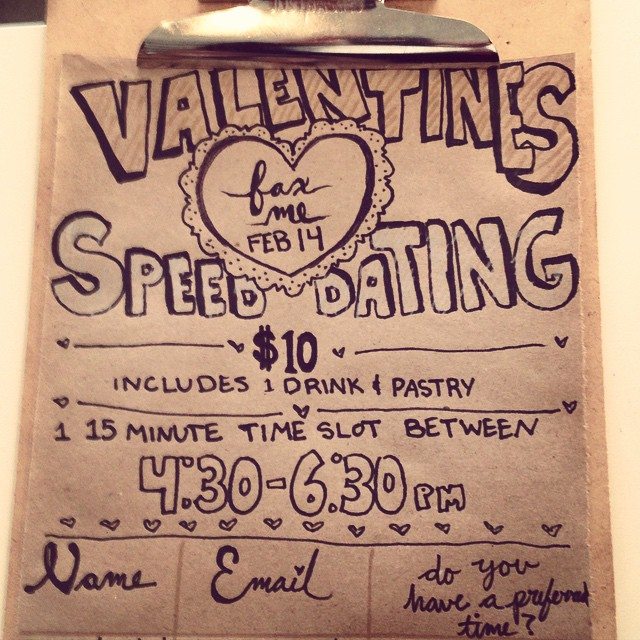 VALENTINES
fax
me
FEB 14
SPEED DATING
$10
INCLUDES 1 DRINK & PASTRY
1 15 MINUTE TIME SLOT BETWEEN
4:30-6:30 PM
Name Email do you
have a preferred
time!?